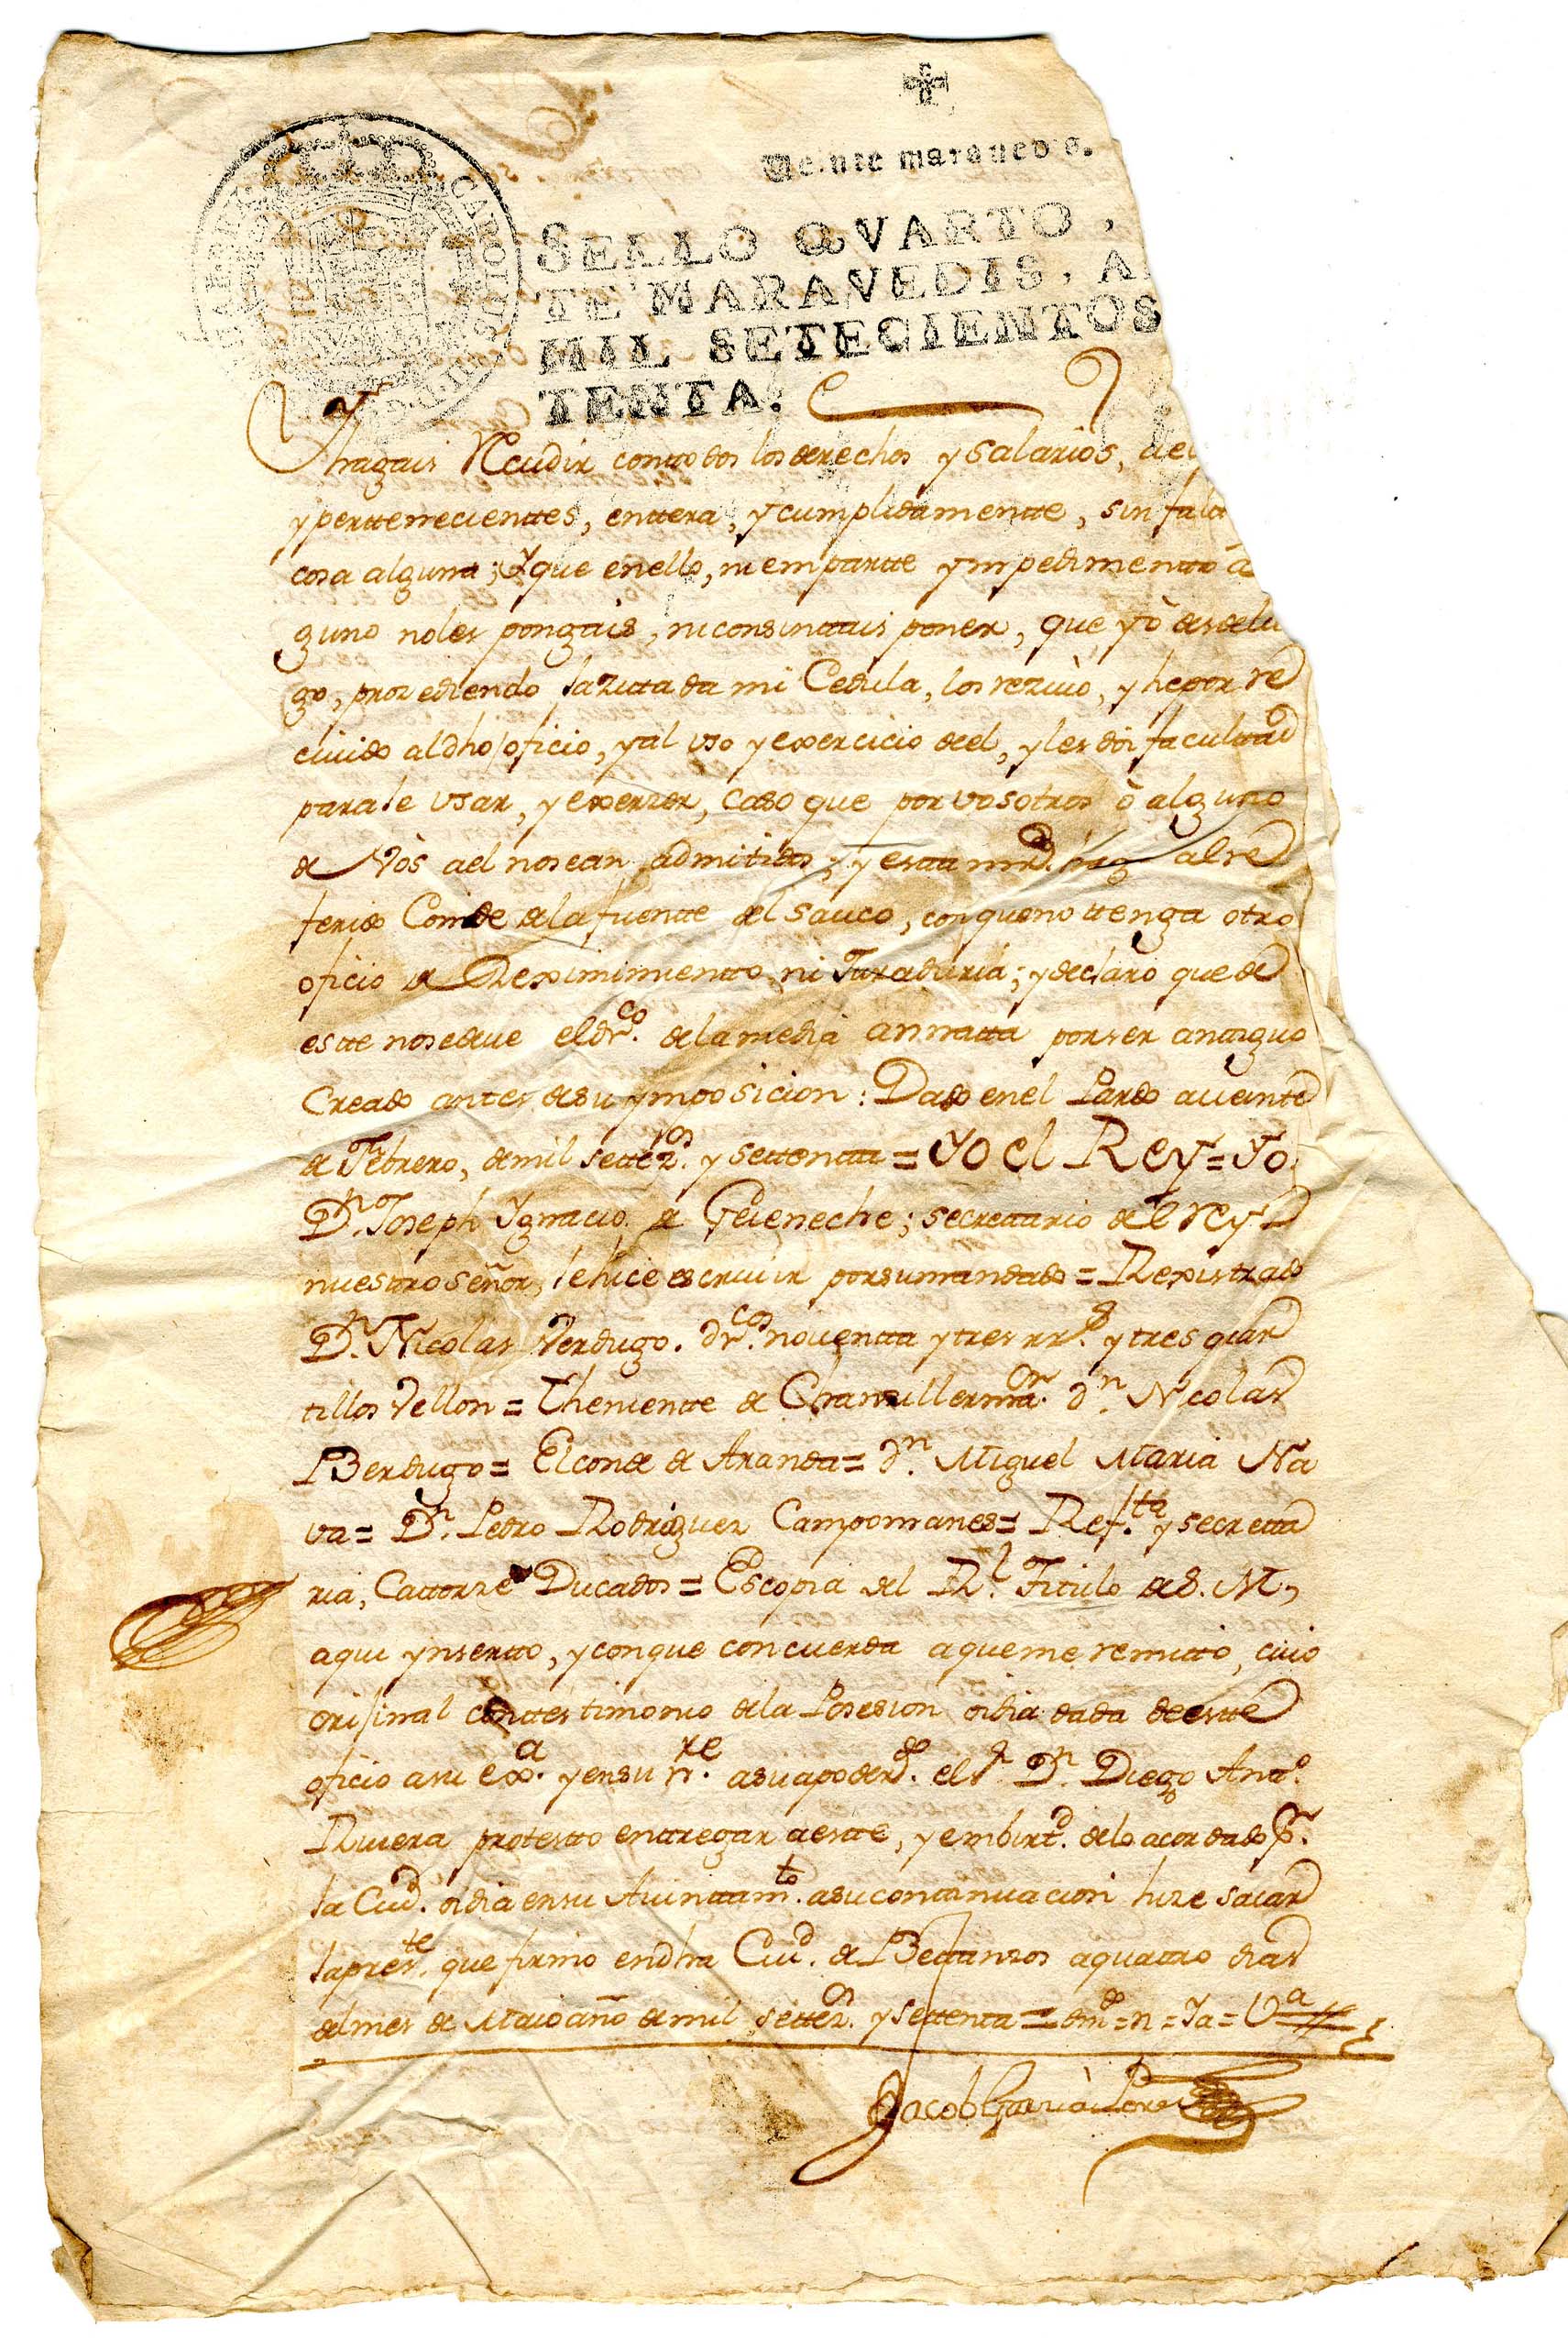 Veinte maravedis.
SELLO QVARTO,
TE MARAVEDIS, A
MIL SETECIENTOS
TENTA.
CAROLUS III D. G.
Y
hagais Acudir con todos los derechos y salarios, de
y pertteneciettes, enttera, y cumplidamentte, sin falt
cosa alguna; Y que en ello, ni en partte ympedimentto a
guno no les pongais, ni consinttais poner, que yò desde lu
go, prozediendo la zittada mi Cedula, los reziuò, y he por re
ciuido al dho oficio, y al vso y exercicio de el, y les doi facultad
para le vsar, y exerzer, caso que por vosotros ò alguno
de Vòs a el no sean admitidos; y estta mrd. hago al re
ferido Conde de la fuentte del Sauco, con que no ttenga otro
oficio de Reximimientto, ni Juraduria; y declaro que de
estte no se deue el drco. de la media annatta por ser anttiguo
Creado antes de su ymposicion: Dado en el Pardo a veintte
de Febrero, de mil settezos. y settentta = Yo el Rey = Yo
Dn. Joseph Ygnacio de Goieneche; secrettario del Rey
nuesttro señor, le hice escriuir por su mandado = Rexistrado
Dn. Nicolas Verdugo. drcos. nouentta y tres rrs. y tres quar
tillos Vellon = Thenientte de Chanzillermor. dn. Nicolas
Berdugo = El conde de Aranda = dn. Miguel Maria Na
va = Dn. Pedro Rodriguez Campomanes = Refta. y secretta
ria, Cattorze Ducados = Es copia del Rl. Titulo de S. M.,
aqui ynsertto, y con que concuerda a que me remitto, cuio
orijinal con testimonio de la Posesion oi dia dada de estte
oficio a su exa. y en su rre. a su apoderdo. el sr. Dn. Diego Anto.
Riuera protestto enttregar a estte, y en birtd. de lo acordado pr.
la Ciud. oi dia en su Aiunttamto. a su conttinuacion hize sacar
la preste. que firmo en dha Ciud. de Bettanzos a quattro dias
del mes de Maio año de mil settezos. y settenta = emdo = n = Ja = Va
Jacob Garcia Perez